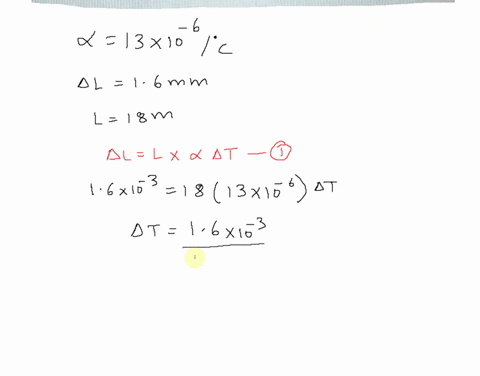 α = 13 × 10⁻⁶ /°C
ΔL = 1.6 mm
L = 18 m
ΔL = L × α ΔT — ①
1.6 × 10⁻³ = 18 ( 13 × 10⁻⁶ ) ΔT
ΔT = 1.6 × 10⁻³